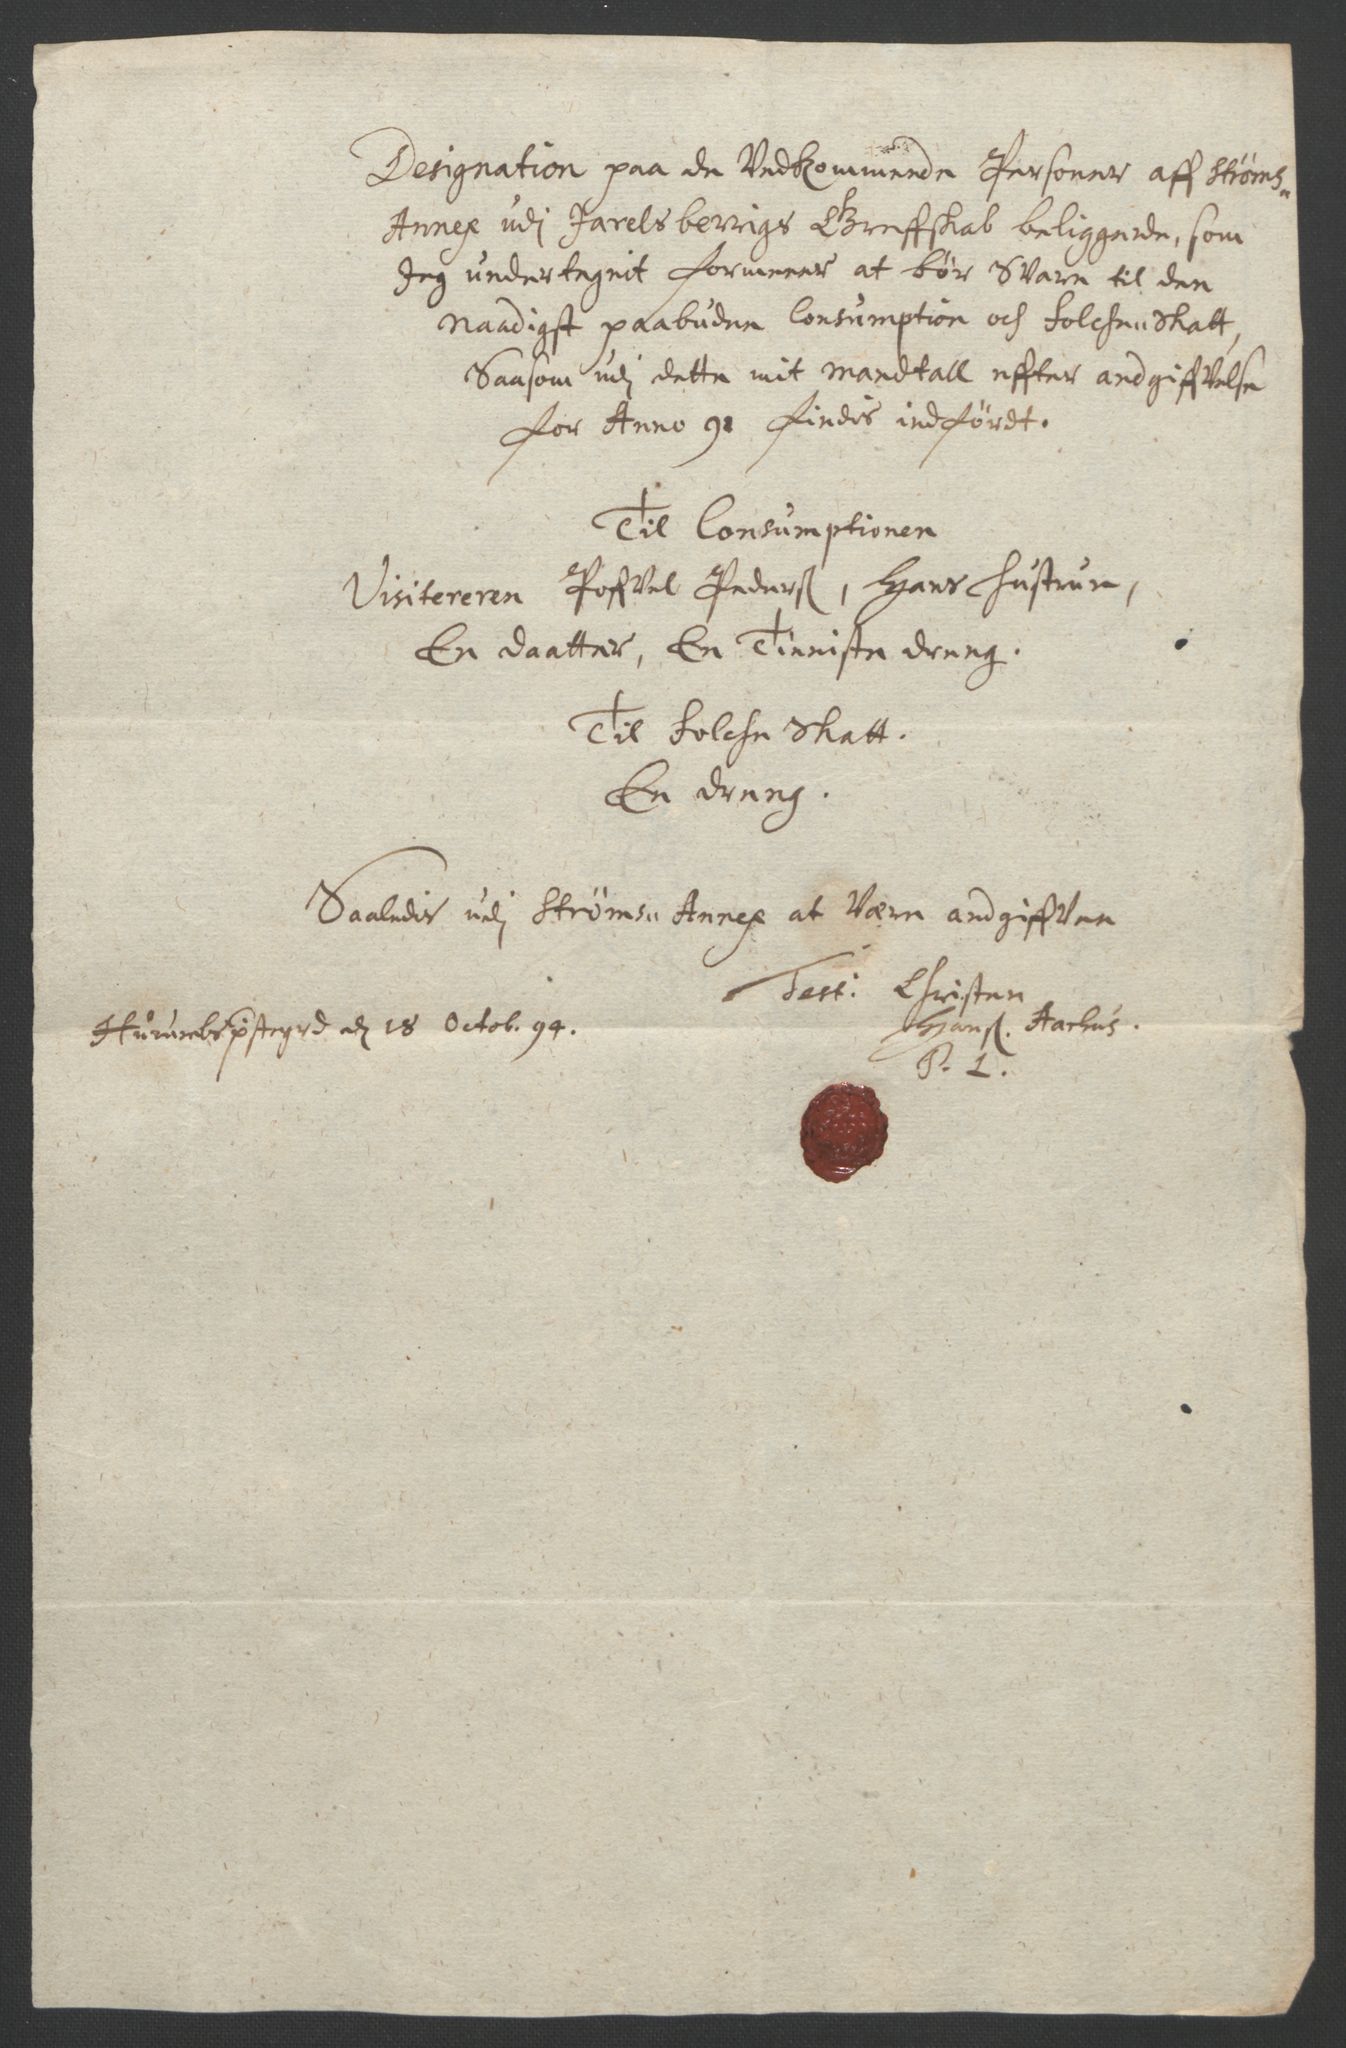 Designation paa de Vedkommende Personer aff Strøms-
Annex udj Jarelsberrigs Greffskab beliggende, som
Jeg undertegnit formener at bør Svare til den
Naadigst paabudne Consumption och folche-Skatt,
Saasom udj dette mit Mandtall effter andgiffvelse
for Anno 91 findis indførdt.
Til Consumptionen
Visitereren Poffvel Pederß, Hans hustrue,
En daatter, En Tieniste dreng.
Til folche Skatt.
En dreng.
Saaledis udj Strøms- Annex at Være andgiffven
Test: Christen
Hurumbs pstegrd dj 18 Octob. 94.
Hanß. Aarhus.
P. L.